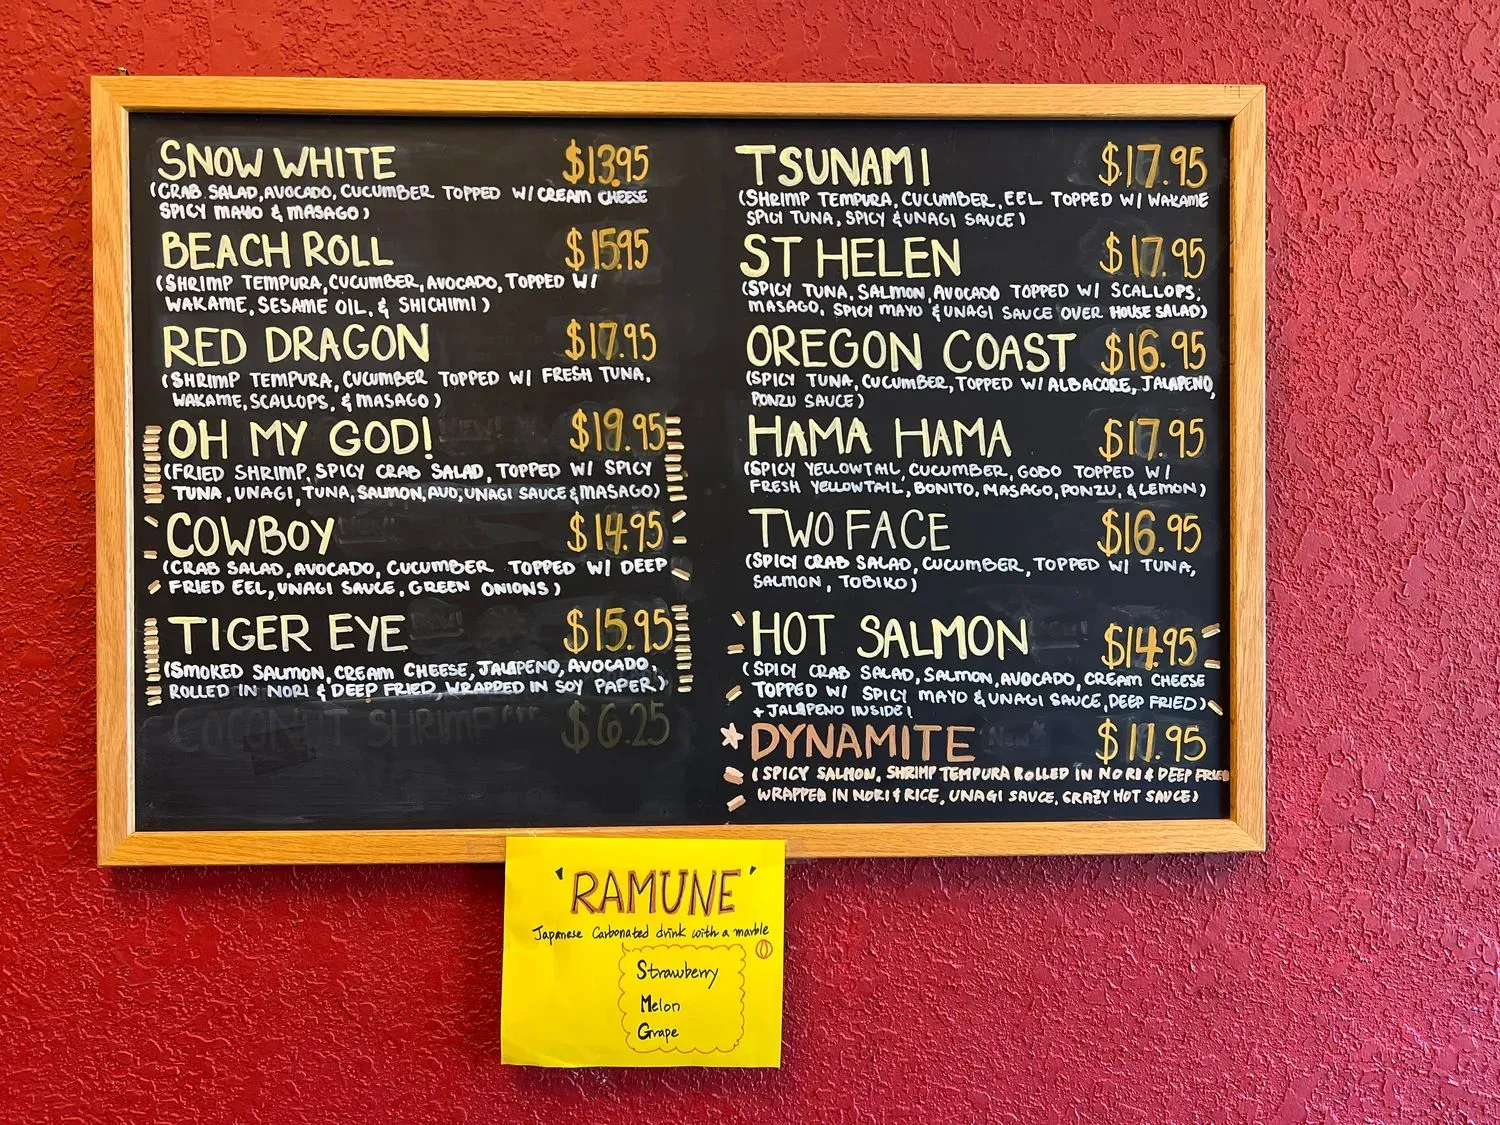 SNOW WHITE $13.95
(CRAB SALAD, AVOCADO, CUCUMBER TOPPED W/ CREAM CHEESE
SPICY MAYO & MASAGO)
BEACH ROLL $15.95
(SHRIMP TEMPURA, CUCUMBER, AVOCADO, TOPPED W/
WAKAME, SESAME OIL, & SHICHIMI)
RED DRAGON $17.95
(SHRIMP TEMPURA, CUCUMBER TOPPED W/ FRESH TUNA,
WAKAME, SCALLOPS, & MASAGO)
OH MY GOD! $19.95
(FRIED SHRIMP, SPICY CRAB SALAD, TOPPED W/ SPICY
TUNA, UNAGI, TUNA, SALMON, AVO, UNAGI SAUCE & MASAGO)
COWBOY $14.95
(CRAB SALAD, AVOCADO, CUCUMBER TOPPED W/ DEEP
FRIED EEL, UNAGI SAUCE, GREEN ONIONS)
TIGER EYE $15.95
(SMOKED SALMON, CREAM CHEESE, JALAPENO, AVOCADO,
ROLLED IN NORI & DEEP FRIED, WRAPPED IN SOY PAPER)
COCONUT SHRIMP $6.25
TSUNAMI $17.95
(SHRIMP TEMPURA, CUCUMBER, EEL TOPPED W/ WAKAME
SPICY TUNA, SPICY & UNAGI SAUCE)
ST HELEN $17.95
(SPICY TUNA, SALMON, AVOCADO TOPPED W/ SCALLOPS,
MASAGO, SPICY MAYO & UNAGI SAUCE OVER HOUSE SALAD)
OREGON COAST $16.95
(SPICY TUNA, CUCUMBER, TOPPED W/ ALBACORE, JALAPENO,
PONZU SAUCE)
HAMA HAMA $17.95
(SPICY YELLOWTAIL, CUCUMBER, GOBO TOPPED W/
FRESH YELLOWTAIL, BONITO, MASAGO, PONZU, & LEMON)
TWO FACE $16.95
(SPICY CRAB SALAD, CUCUMBER, TOPPED W/ TUNA,
SALMON, TOBIKO)
HOT SALMON $14.95
(SPICY CRAB SALAD, SALMON, AVOCADO, CREAM CHEESE
TOPPED W/ SPICY MAYO & UNAGI SAUCE, DEEP FRIED)
+ JALAPENO INSIDE!
DYNAMITE New $11.95
(SPICY SALMON, SHRIMP TEMPURA ROLLED IN NORI & DEEP FRIED
WRAPPED IN NORI & RICE, UNAGI SAUCE, CRAZY HOT SAUCE)
'RAMUNE'
Japanese Carbonated drink with a marble
Strawberry
Melon
Grape